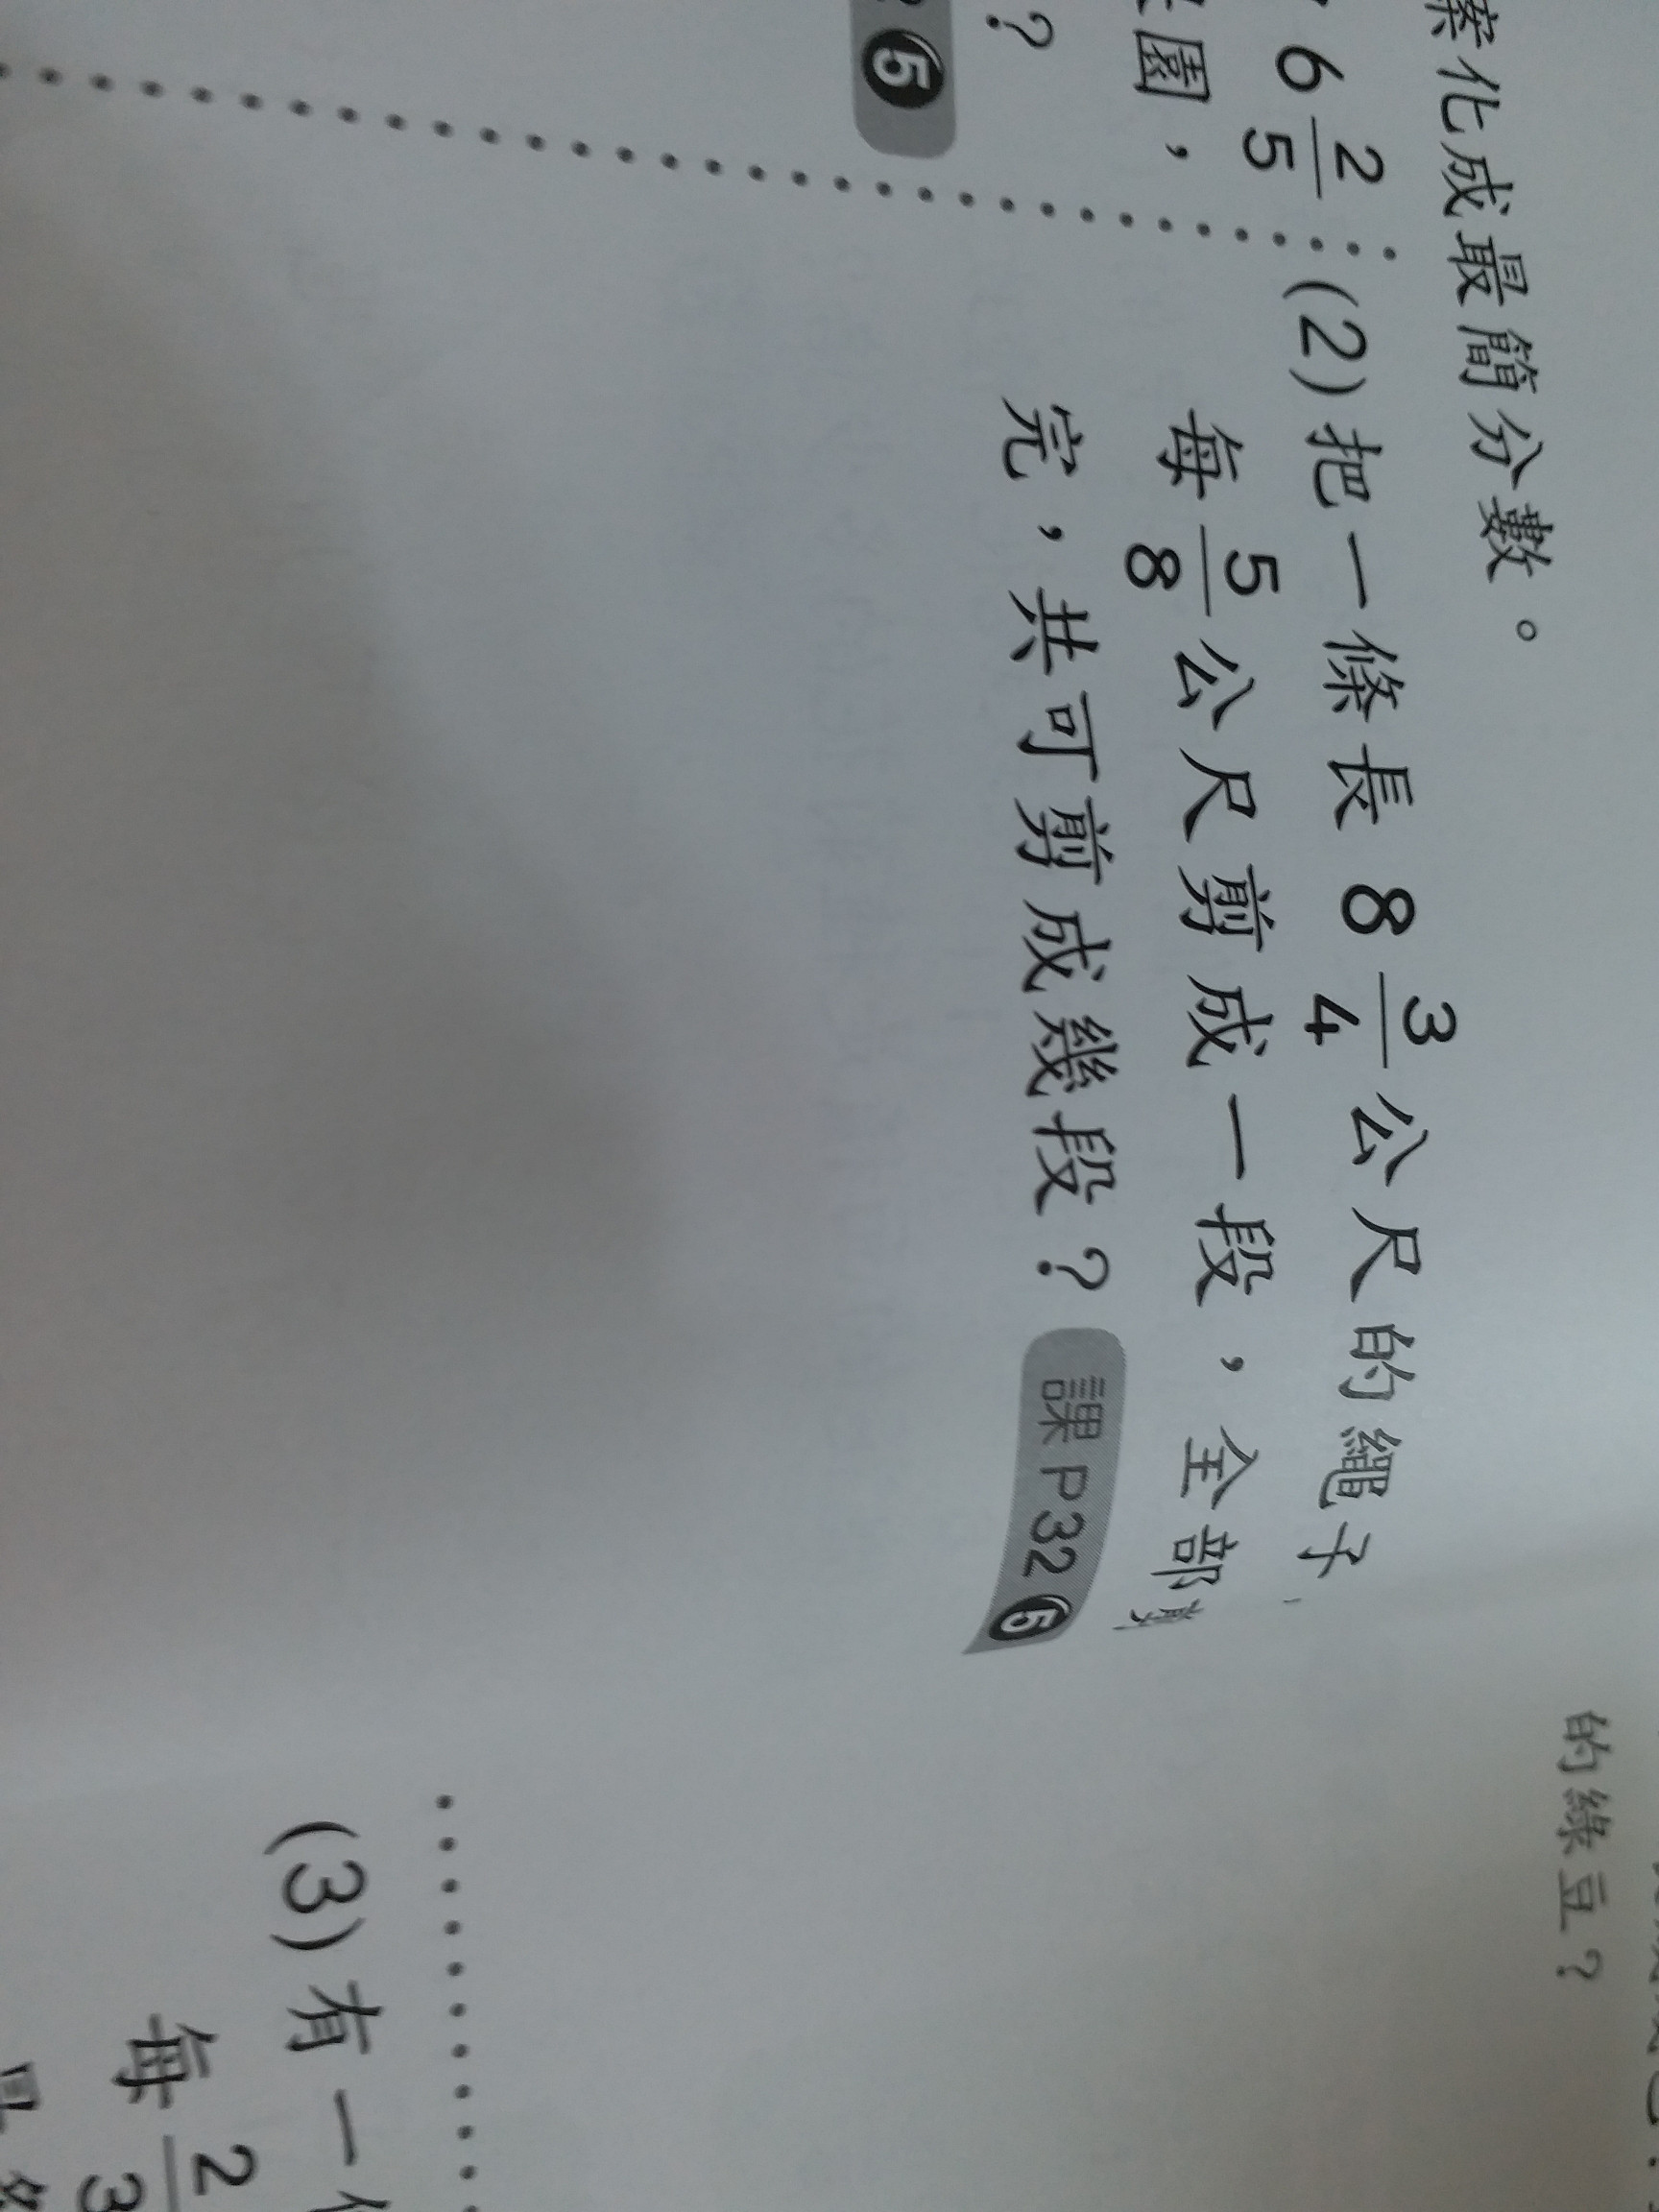 案化成最簡分數。
6 2/5
園，
？
5
(2)把一條長 8 3/4 公尺的繩子
每 5/8 公尺剪成一段，全部剪
完，共可剪成幾段？ 課 P32 5
的綠豆？
(3)有一
每 2/3